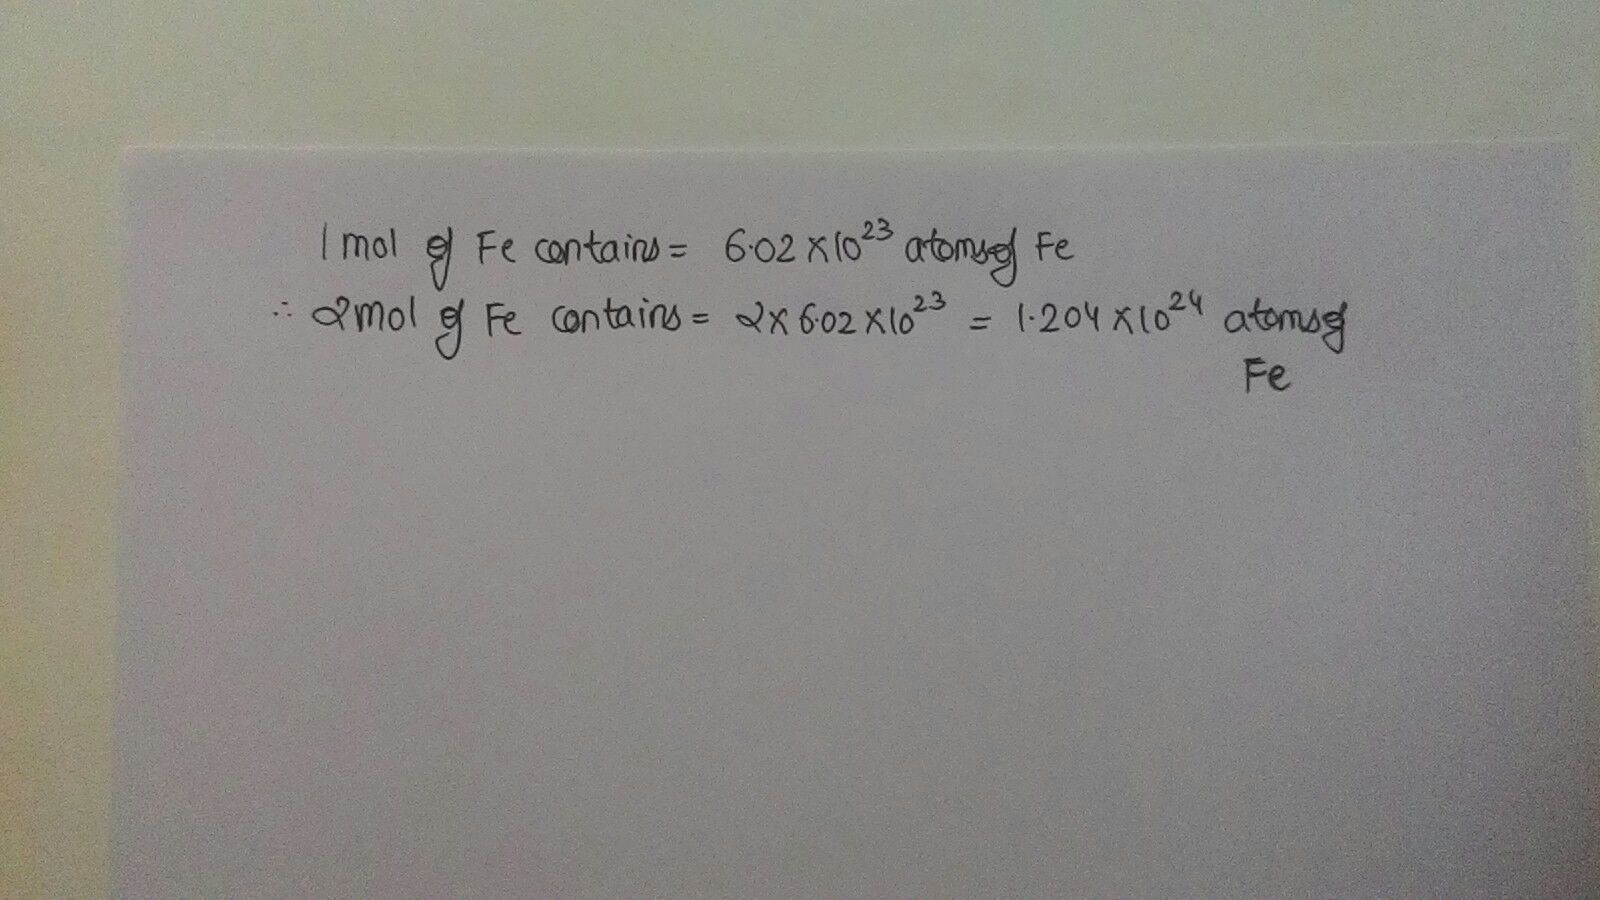 1 mol of Fe contains = 6.02 × 10²³ atoms of Fe
∴ 2 mol of Fe contains = 2 × 6.02 × 10²³ = 1.204 × 10²⁴ atoms of
Fe